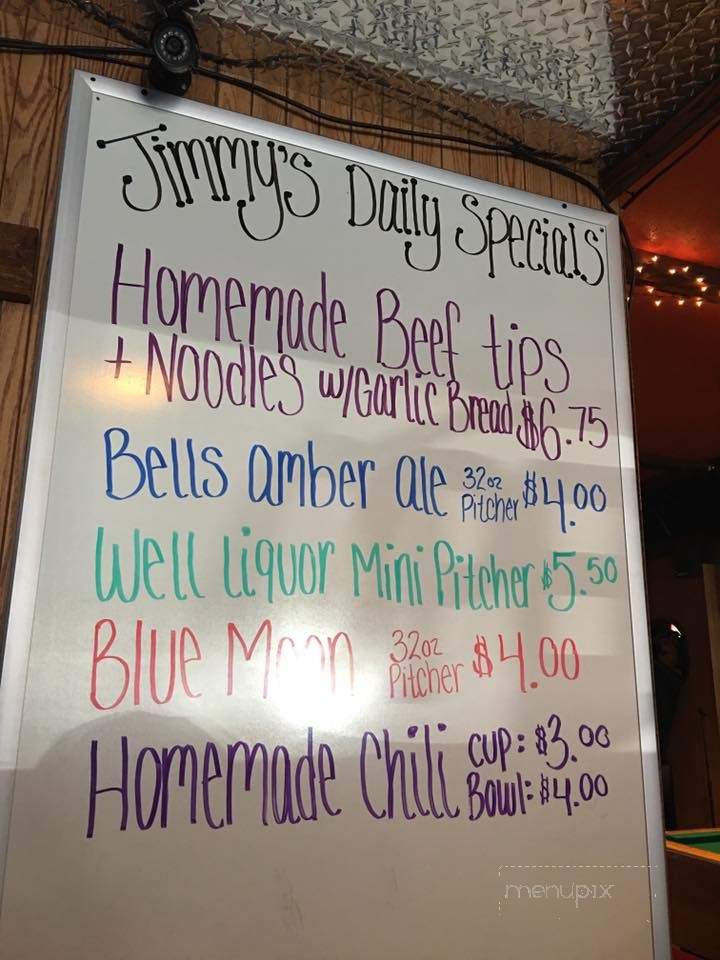 Jimmy's Daily Specials
Homemade Beef tips
+ Noodles w/Garlic Bread $6.75
Bells amber ale 32oz Pitcher $4.00
Well liquor Mini Pitcher $5.50
Blue Moon 32oz Pitcher $4.00
Homemade Chili Cup: $3.00
Bowl: $4.00
menupix